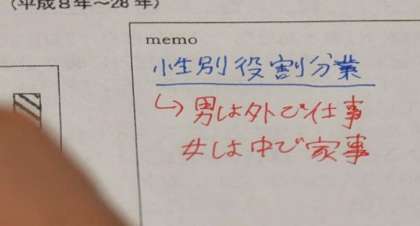 (平成8年～28年)
memo
性別役割分業
↳男は外で仕事
女は中で家事